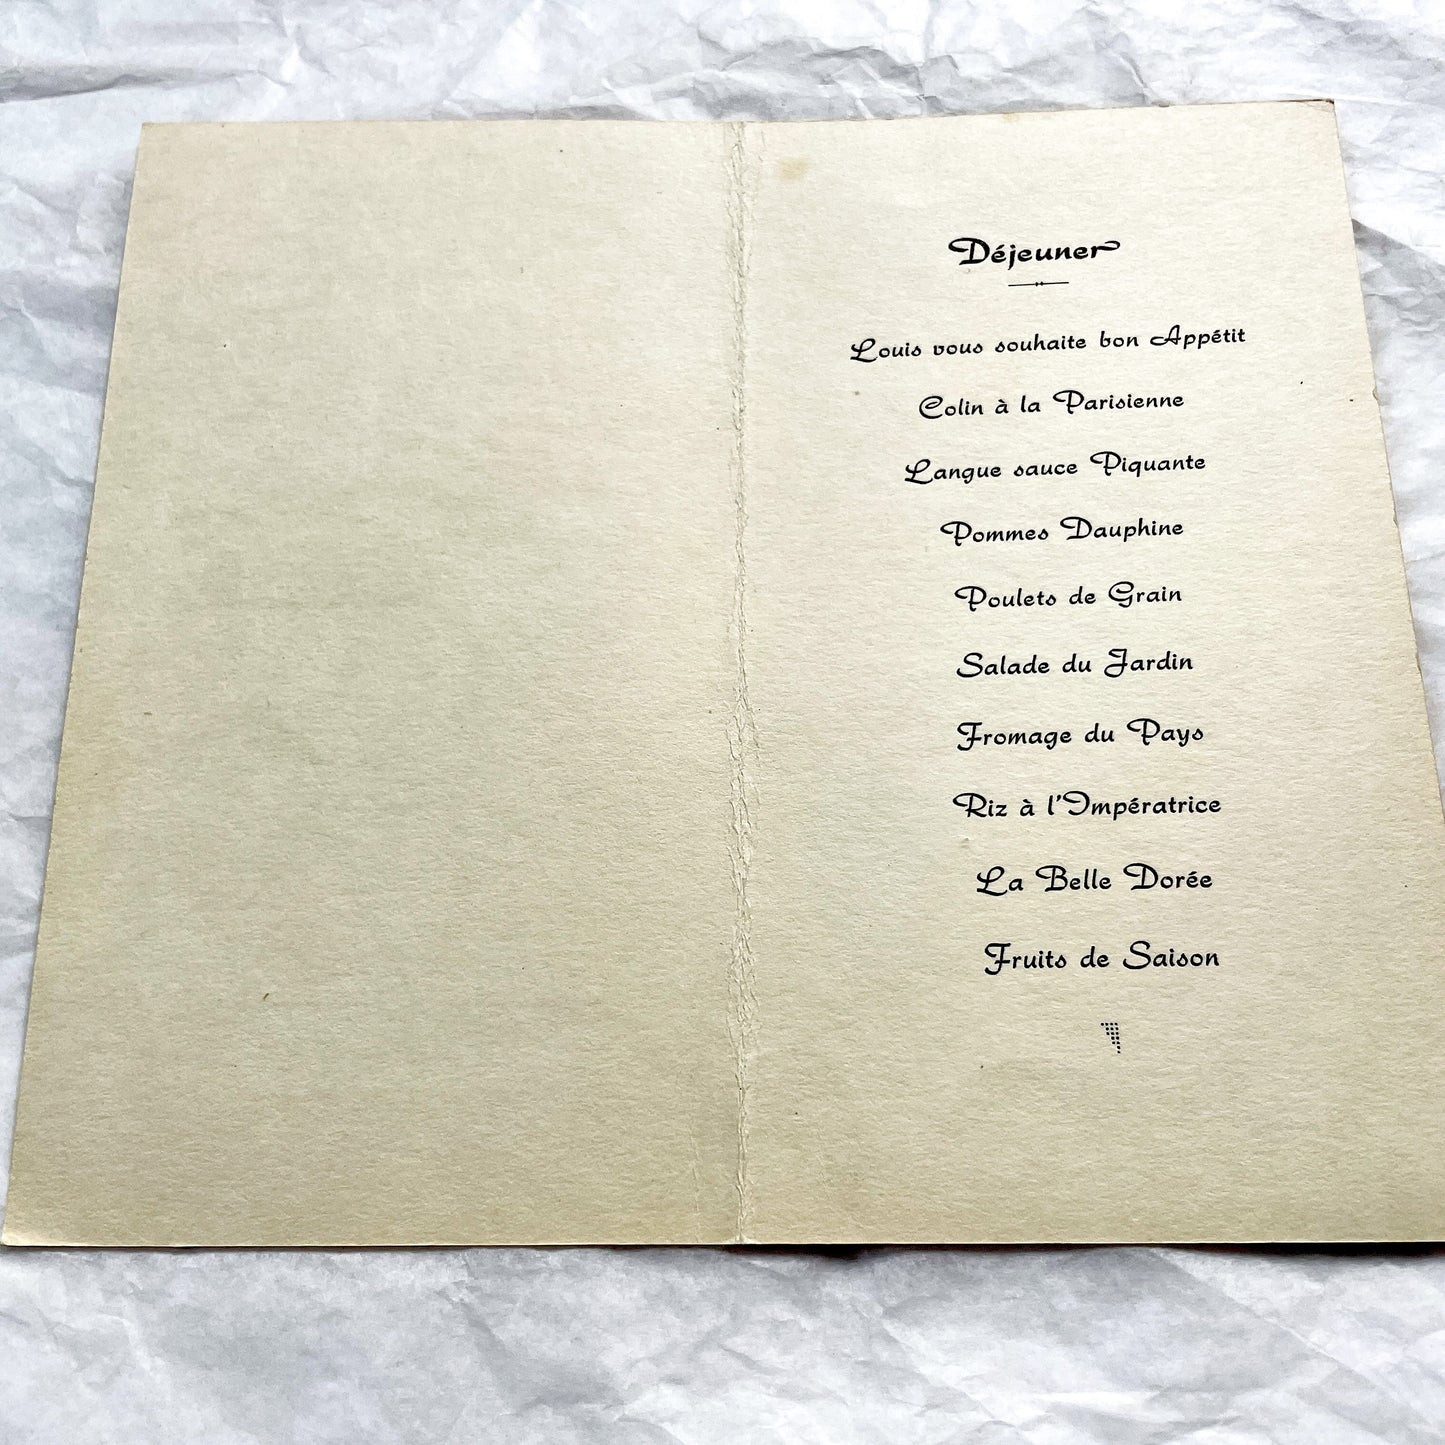 Déjeuner
Louis vous souhaite bon Appétit
Colin à la Parisienne
Langue sauce Piquante
Pommes Dauphine
Poulets de Grain
Salade du Jardin
Fromage du Pays
Riz à l'Impératrice
La Belle Dorée
Fruits de Saison